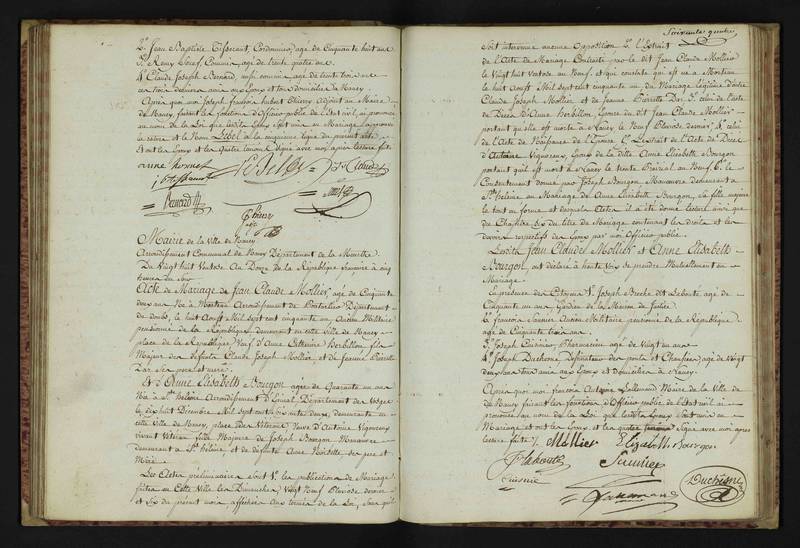 2.° Jean Baptiste Tisserant, Cordonnier, agé de Cinquante huit ans
3.° Remy Josef, Commis, agé de trente quatre ans
4.° Claude Joseph Bernard, aussi commis, agé de trente trois ans
ces trois derniers amis aux Epoux et tous domiciliés de Nancy
Après quoi moi Joseph françois hubert Thiery, Adjoint au Maire
de Nancy, faisant les fonctions d'officier public de l'état civil, ai prononcé
au nom de la Loi que lesdits Epoux sont unis en Mariage, approuvé
la rature et le Nom Lebel à la cinquieme ligne du présent acte
Et ont les Epoux et les Quatre temoins Signé avec moi après lecture faite
Bernard
Mairie de la Ville de Nancy
Arrondissement Communal de Nancy Département de la Meurthe
Du Vingt huit Ventose An Douze de la République française à cinq
heures du soir
Acte de Mariage de Jean Claude Mollier, agé de Cinquante
deux ans Né à Morteau Arrondissement de Pontarlier Département
du doubs, le huit Aoust Mil sept cent cinquante un, Ancien Militaire
pensionné de la République demeurant en cette Ville de Nancy
place de la République, Veuf d'Anne Catherine Herbillon fils
Majeur des defunts Claude Joseph Mollier et de Jeanne Pierrette
ses pere et mere
Et d'Anne Elisabeth Bourgon agée de Quarante un ans
Née à Ste helène Arrondissement d'Epinal, Département des Vosges
le dix huit Décembre Mil sept cent soixante deux, demeurante en
cette Ville de Nancy, place de Veuve d'Antoine Vigneron
vivant Vétéran fille Majeure de Joseph Bourgon Manœuvre
demeurant à Ste helène et de defunte Anne ses pere et
Mere
Les Actes préliminaires sont 1.° les publications de Mariage
faites en Cette Ville les Dimanches, Vingt Neuf Pluviose dernier
et Six du présent mois, affichées aux termes de la Loi, sans qu'il
soit intervenu aucune Opposition 2.° l'Extrait
de l'Acte de Mariage Contracté par le dit Jean Claude Mollier
le Vingt huit Ventose an Neuf, et qui constate qu'il est né à Morteau
le huit Aoust Mil sept cent cinquante un, du Mariage légitime d'entre
Claude Joseph Mollier et de Jeanne Pierrette 3.° celui de l'acte
de Décès d'Anne Herbillon, Epouse du dit Jean Claude Mollier
portant qu'elle est morte à Nancy le Neuf Pluviose dernier, 4.° celui
de l'Acte de Naissance de l'Epouse 5.° L'extrait de l'Acte de Décès
d'Antoine Vigneron, Epoux de la ditte Anne Elisabeth Bourgon
portant qu'il est mort à Nancy le trente Prairial an Neuf, 6.° le
Consentement donné par Joseph Bourgon Manœuvre demeurant à
Ste helène au Mariage de Anne Elisabeth Bourgon, sa fille majeure
le tout en forme et desquels Actes il a été donné lecture ainsi que
du Chapitre six du titre du Mariage contenant les droits et les
devoirs respectifs des Epoux par moi Officier public
Lesdits Jean Claude Mollier et Anne Elisabeth
Bourgon, ont déclaré à haute Voix se prendre Mutuellement en
Mariage
En présence des Citoyens 1.° Joseph agé de
Cinquante un ans, Gardien de la Maison de Justice
2.° françois Saunier Ancien Militaire pensionné de la République
agé de Cinquante trois ans
3.° Joseph Cuisinier, Pharmacien agé de Vingt un ans
4.° Joseph Duchesne, Dessinateur des ponts et Chaussées, agé de Vingt
deux ans tous amis aux Epoux et domiciliés à Nancy
Après quoi moi françois Antoine Lallemand Maire de la Ville de
de Nancy faisant les fonctions d'Officier public de l'état civil ai
prononcé au nom de la Loi que lesdits Epoux sont unis en
Mariage et ont les Epoux et les quatre temoins Signé avec moi après
lecture faite
Mollier
Elizabeth Bourgon
Duchesne